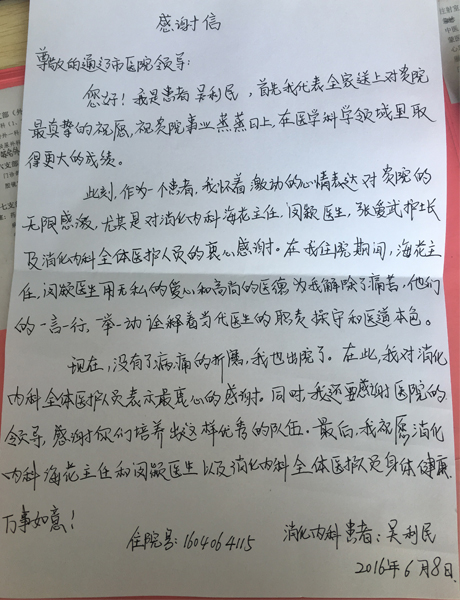 感谢信
尊敬的通辽市医院领导:
您好!我是患者吴利民,首先我代表全家送上对贵院
最真挚的祝愿,祝贵院事业蒸蒸日上,在医学科学领域里取
得更大的成绩。
此刻,作为一个患者,我怀着激动的心情表达对贵院的
无限感激,尤其是对消化内科海花主任,闵凝医生,张 武护士长
及消化内科全体医护人员的衷心感谢。在我住院期间,海花主
任,闵凝医生用无私的爱心和高尚的医德为我解除了痛苦,他们
的一言一行,举一动诠释着当代医生的职责操守和医道本色。
现在,没有了病痛的折磨,我也出院了。在此,我对消化
内科全体医护人员表示最衷心的感谢。同时,我还要感谢医院的
领导,感谢你们培养出这样优秀的队伍。最后,我祝愿消化
内科海花主任和闵凝医生以及消化内科全体医护人员身体健康
万事如意!
住院号:1604064115 消化内科患者:吴利民
2016年6月8日.